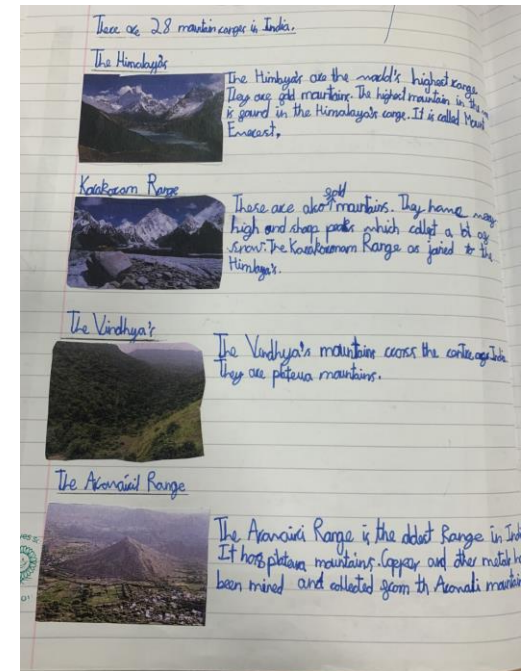 There are 28 mountain ranges in India.
The Himalaya's
The Himlaya's are the world's highest range.
They are fold mountains. The highest mountain in the
is found in the Himalaya's range. It is called Mount
Everest.
Karakoram Range
These are also fold mountains. They have many
high and sharp peaks which collect a bit of
snow. The Karakoromam Range as joined to the
Himlaya's.
The Vindhya's
The Vindhya's mountains cross the centre of India
They are plateua mountains.
The Range
The Range is the oldest Range in Ind
It has plateua mountains. Copper and other metals ha
been mined and collected from th Aravali mountain